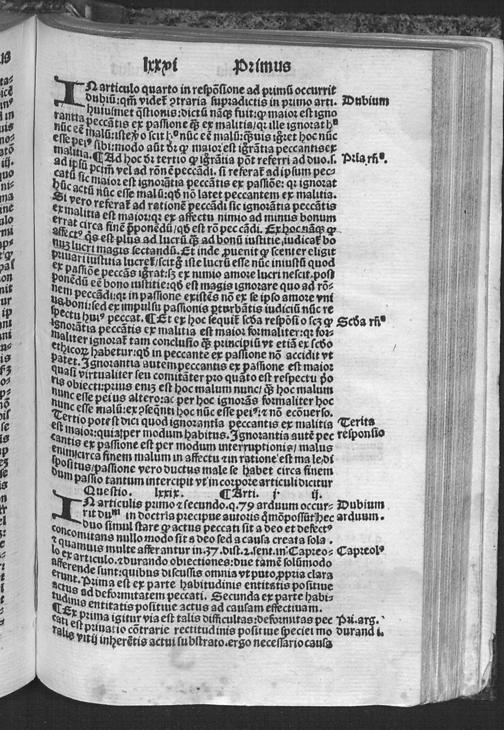 lxxvi Primus
IN articulo quarto in respōsione ad primū occurrit
dubiū: qm̄ videt ꝯtraria supradictis in primo arti. Dubium
huiusmet q̄stionis: dictū nāq̄ fuit: ꝙ maior est igno
rantia peccātis ex passione q̄ ex malitia, qr ille ignorat hᵒ
nūc eē malū: iste
esse peiᵒ sibi: modo aūt dr̄ ꝙ maior est igrātia peccantis ex
malitia. ¶Ad hoc dr̄ tertio ꝙ igrātia pōt referri ad duo. s. Pria.rn̄ᵒ.
ad ipsū pctm̄ vel ad rōnē peccādi. si referat ad ipsum pec-
catū sic maior est ignorātia peccātis ex passiōe: qr ignorat
hūc actū nūc esse malū: qd nō latet peccantem ex malitia.
Si vero referat ad rationē peccādi sic ignorātia peccātis
ex malitia est maior: qr ex affectu nimio ad minus bonum
errat circa finē p̄ponēdū, qd est rō peccādi. Ex hoc nāqꝫ ꝙ
affectᵒ. Qs est plus ad lucrū q̄ ad bonū iustitie, iudicat bo
nuꝫ lucri magis sectandū. Et inde puenit ꝙ scienter eligit
priuari iustitia
ex passione peccās igrat: sꝫ ex nimio amore lucri nescit. post
ponēdū eē bono iustitie: qd est magis ignorare quo ad rō-
nem peccādi: qr in passione existēs nō ex se ipso amore vni
us boni: sed ex impulsu passionis pturbātis iudiciū nūc re
spectu huiᵒ peccat. ¶Et ex hoc sequit scda respōsio scꝫ ꝙ Scda rn̄ᵒ
ignorātia peccātis ex malitia est maior formaliter: qr for-
maliter ignorat tam conclusio q̄ principiū vt etiā ex scdo
ethicoꝝ habetur: qd in peccante ex passione nō accidit vt
patet. Ignorantia autem peccantis ex passione est maior
quasi virtualiter seu comitāter pro quāto est respectu pō
ris obiecti: prius enī est hoc malum nunc, q̄ hoc malum
nunc esse peius altero: ac per hoc ignorās formaliter hoc
nunc esse malū: ex sequēti hoc nūc esse peiᵒ: z nō ecōuerso.
Tertio potest dici quod ignorantia peccantis ex malitia Tertia
est maior: quia per modum habitus. Ignorantia autē pec responsio
cantis ex passione est per modum interruptionis, malus
enim circa finem malum in affectu z in ratione est male di
spositus, passione vero ductus male se habet circa finem
dum passio tantum intercipit vt in corpore articuli dicitur
Questio. lxxix. ¶Arti. j. ij.
IN articulis primo z secundo. q. 79 arduum occur- Dubium
rit dum in doctrīa precipue autoris qm̄o possūt hec arduum.
duo simul stare ꝙ actus peccati sit a deo et defectᵒ
concomitans nullo modo sit a deo sed a causa creata sola.
z quamuis multe afferantur in. 37. dist. 2. sent. in Capreo- Capreolᵒ
lo ex articulo. z durando obiectiones: due tamē solūmodo
afferende sunt: quibus discussis omnia vt puto, ppria clara
erunt. Prima est ex parte habitudinis entitatis positiue
actus ad deformitatem peccati. Secunda ex parte habi-
tudinis entitatis positiue actus ad causam effectiuam.
¶Ex prima igitur via est talis difficultas: deformitas pec Pri.arg.
cati est priuatio cōtrarie rectitudinis positiue speciei mo durand i.
ralis vitij inherētis actui substrato. ergo necessario causa